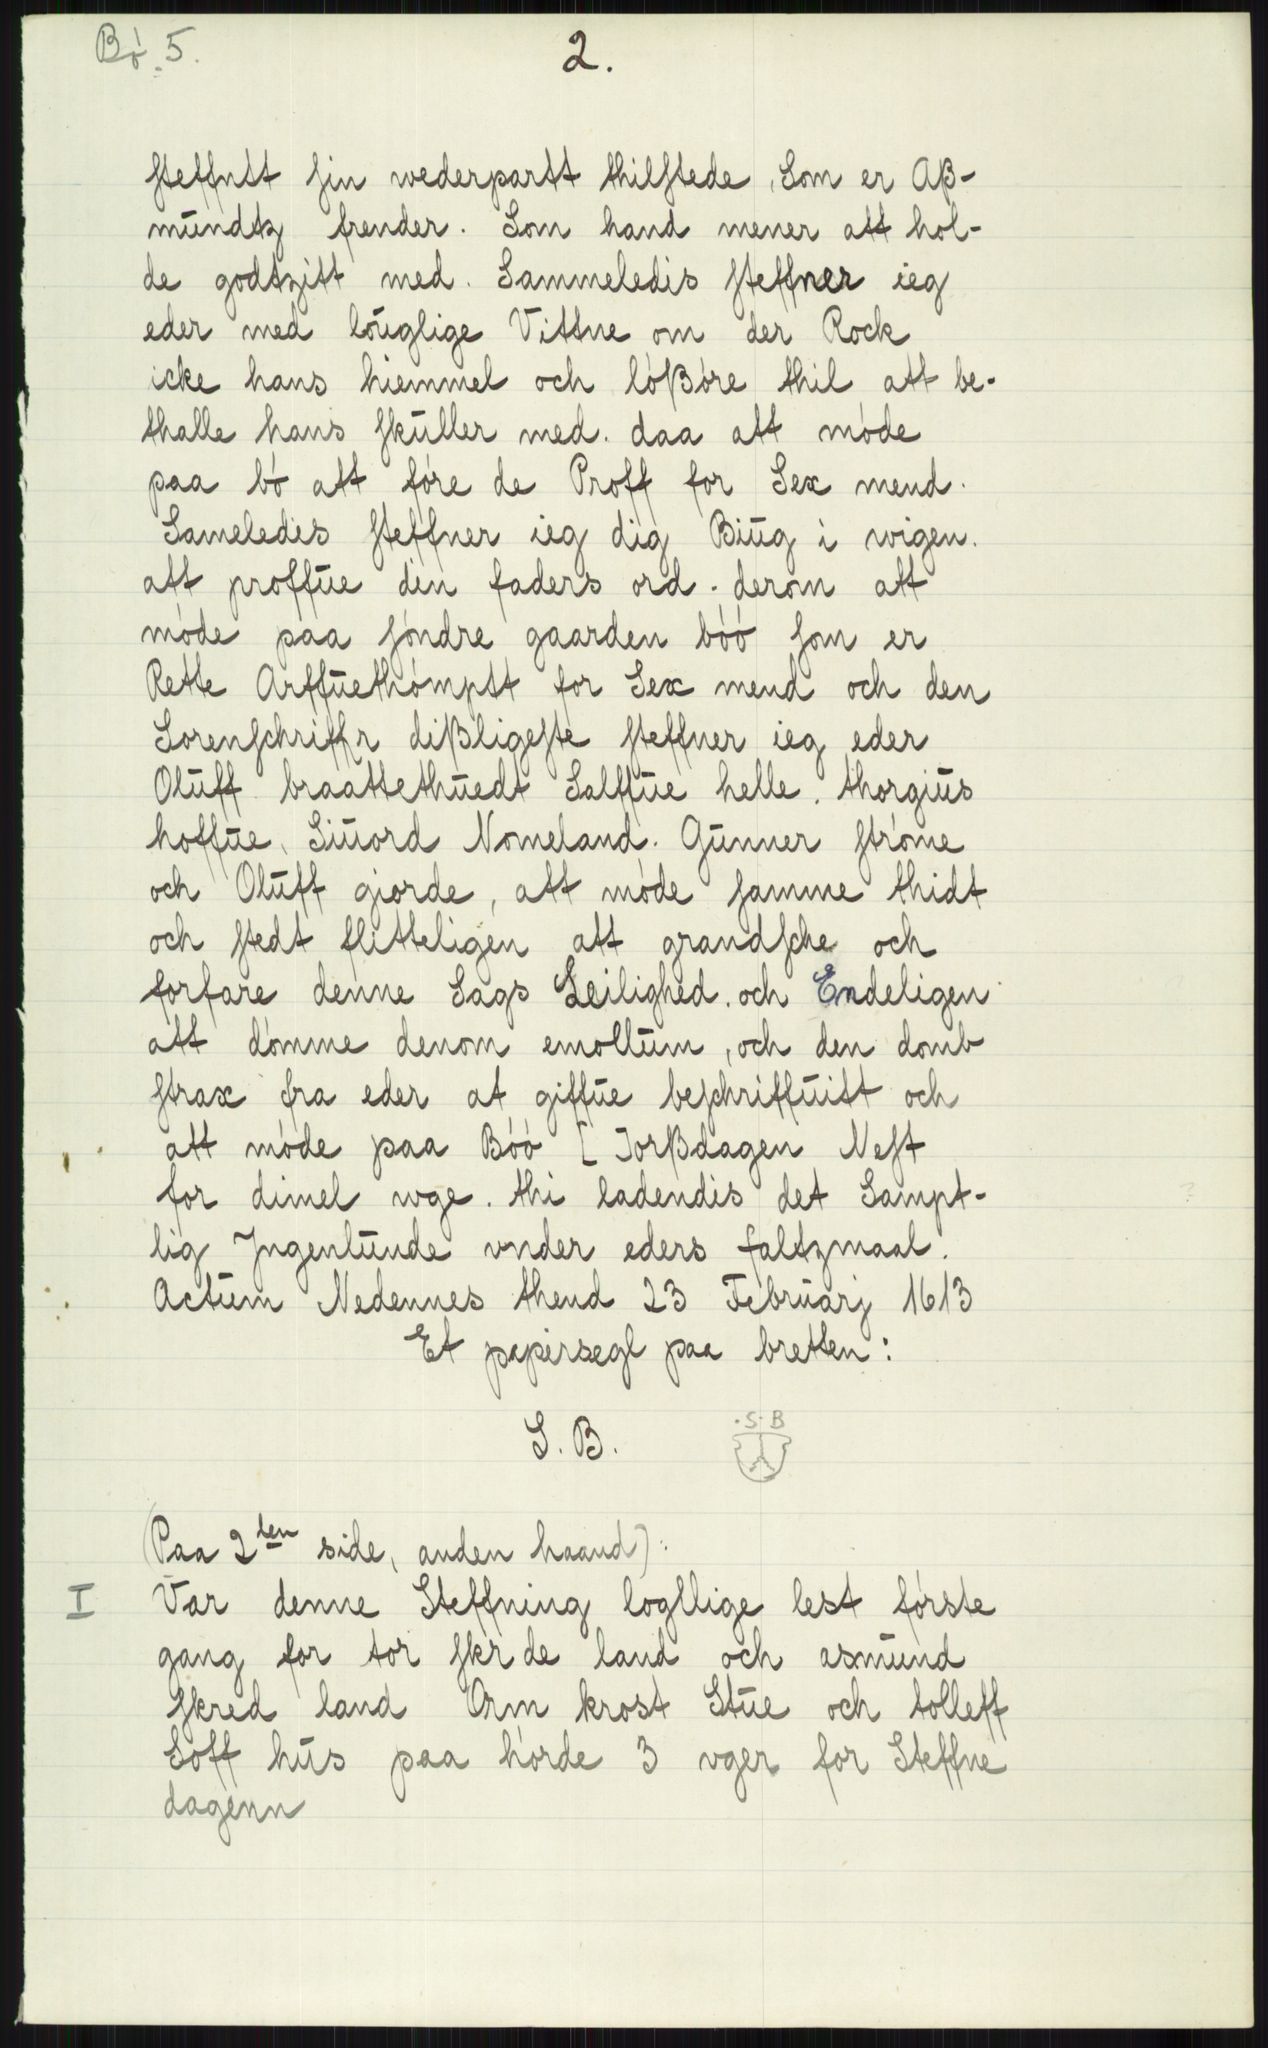 Bó. 5.
2.
steffntt sin wederpartt thilstede, Som er Aß-
mündtz frender. Som hand mener att hol-
de godtzitt med. Sammeledis steffner ieg
eder med loüglige Vittne om der Rock
icke hans hiemmel och lóßóre thil att be-
thalle hans sküller med. daa att móde
paa bó att fóre de Proff for Sex mend.
Sameledis steffner ieg dig Biüg i wigen.
att proffüe din faders ord. derom att
móde paa sóndre gaarden bóó som er
Rette Arffüethómptt for Sex mend och den
Sorenschriffr dißligeste steffner ieg eder
Olüff braattethüedt Salffüe helle. thorgiüs
hoffüe, Siüord Nomeland. Günner stróme
och Olüff gjorde, att móde samme thidt
och stedt flitteligen att grandsche och
forfare denne Sags Leilighed. och Endeligen
att dómme denom emollüm, och den domb
strax fra eder at giffüe beschriffüitt och
att móde paa Bóó [ ]orßdagen Nest
for dimel wge. thi ladendis det Sampt-
lig Jngenlünde vnder eders faltzmaal.
Actüm Nedennes thend 23 Febrüarj 1613
Et papirsegl paa bretten:
S. B. .S.B
(Paa 2den side, anden haand):
I Var denne Steffning logllige lest fórste
gang for tor skr de land och asmünd
skred land Orm krost Stüe och tolleff
Soff hüs paa hórde 3 vger for Steffne
dagenn